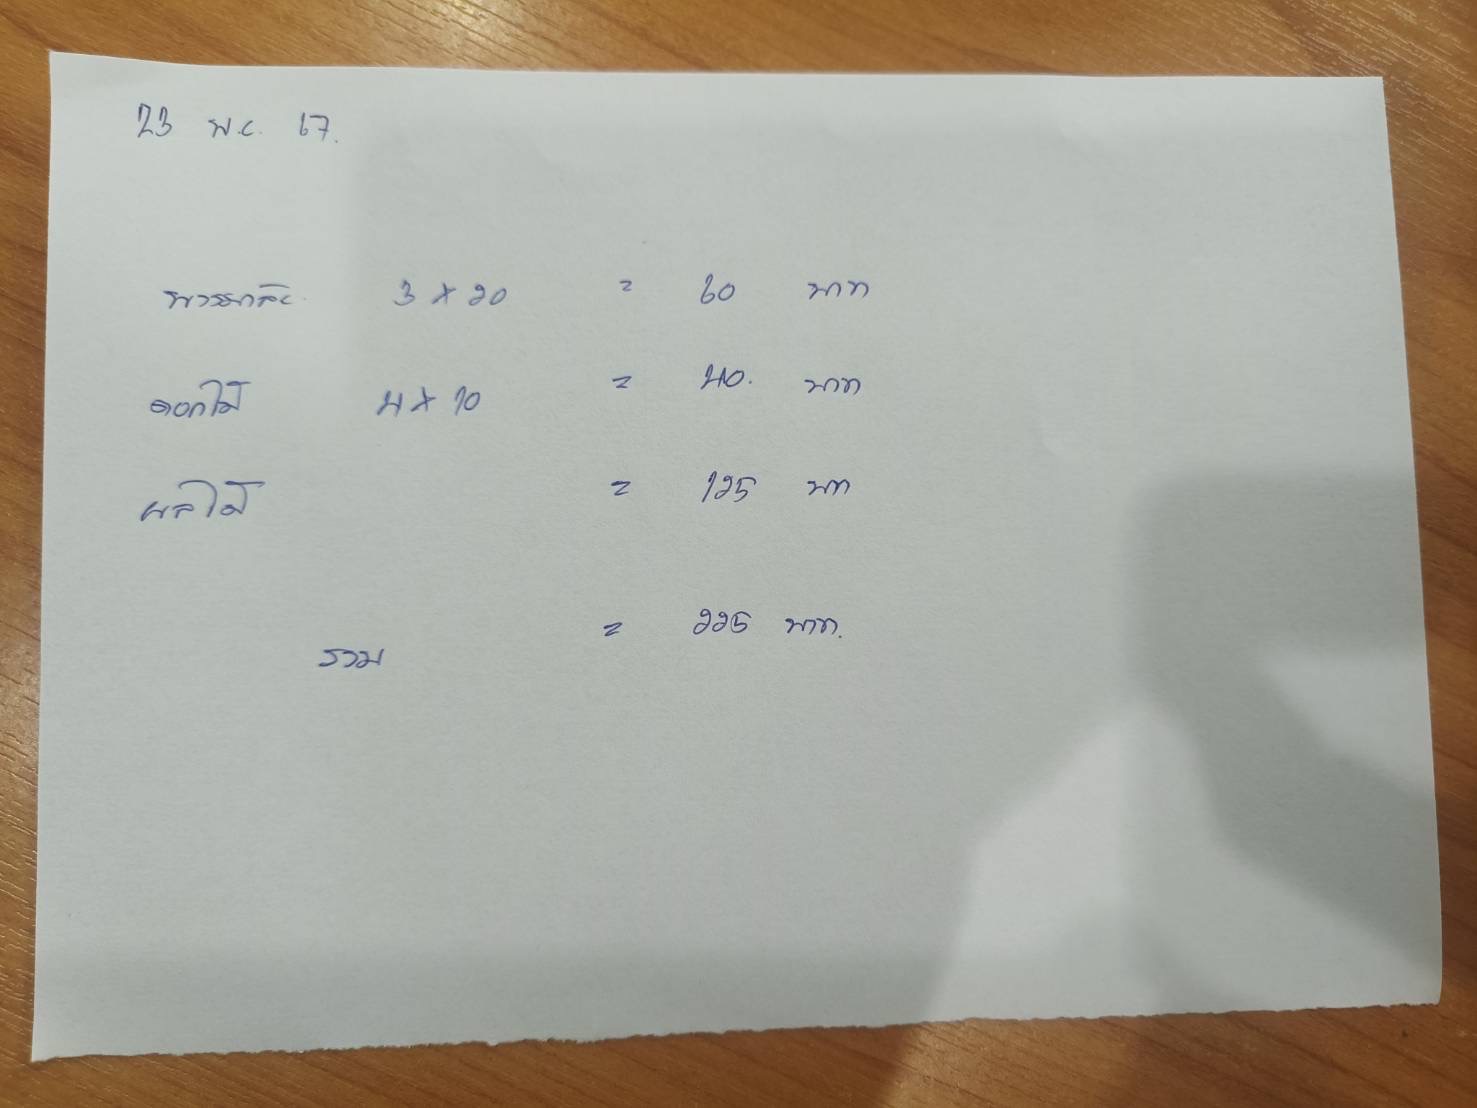 23 พ.ย. 67.
พวงมาลัย 3 x 20 = 60 บาท
ดอกไม้ 4 x 10 = 40. บาท
ผลไม้ = 125 บาท
รวม = 225 บาท.